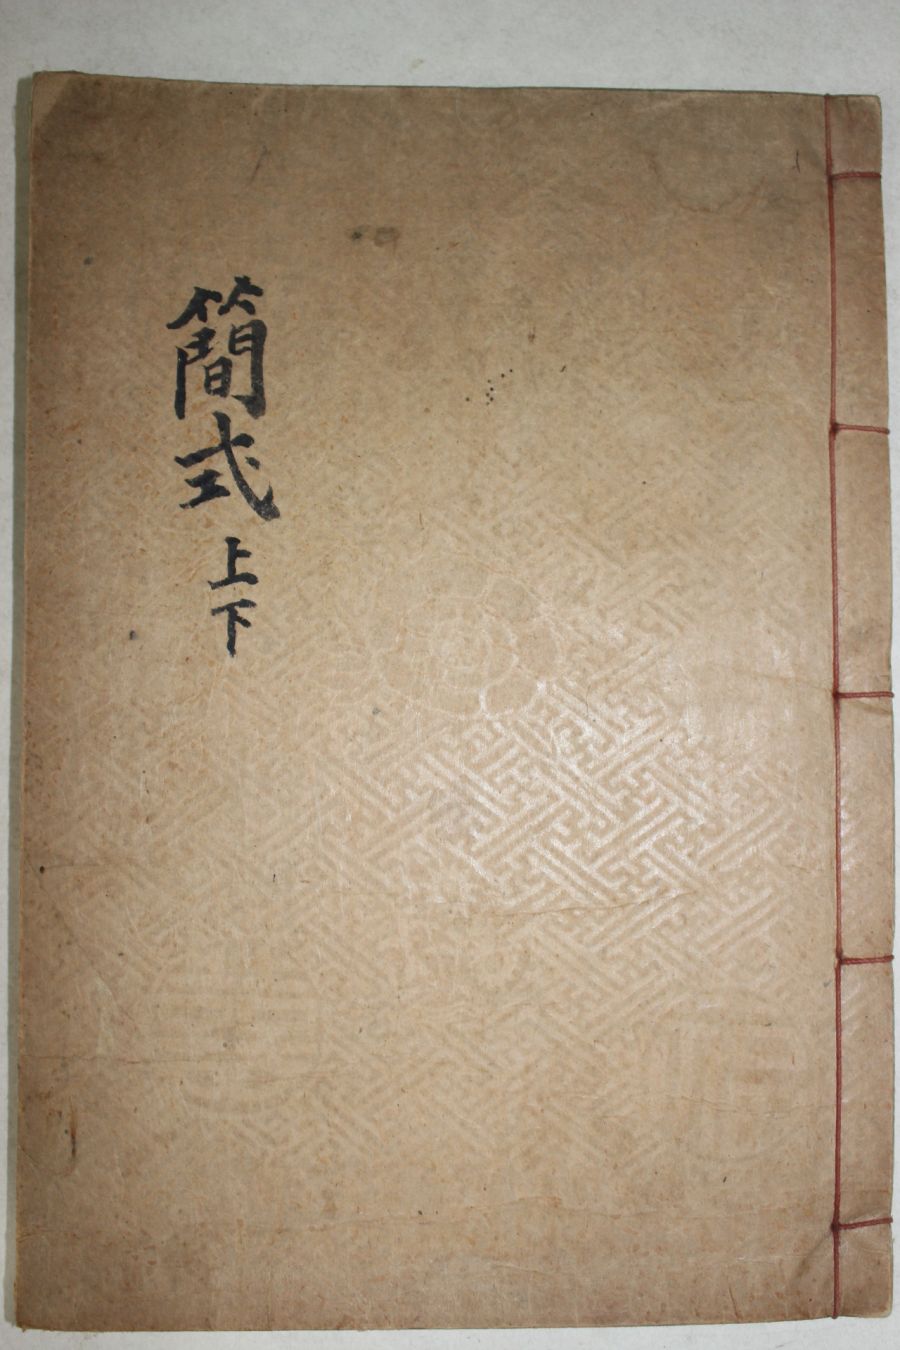 簡式上下